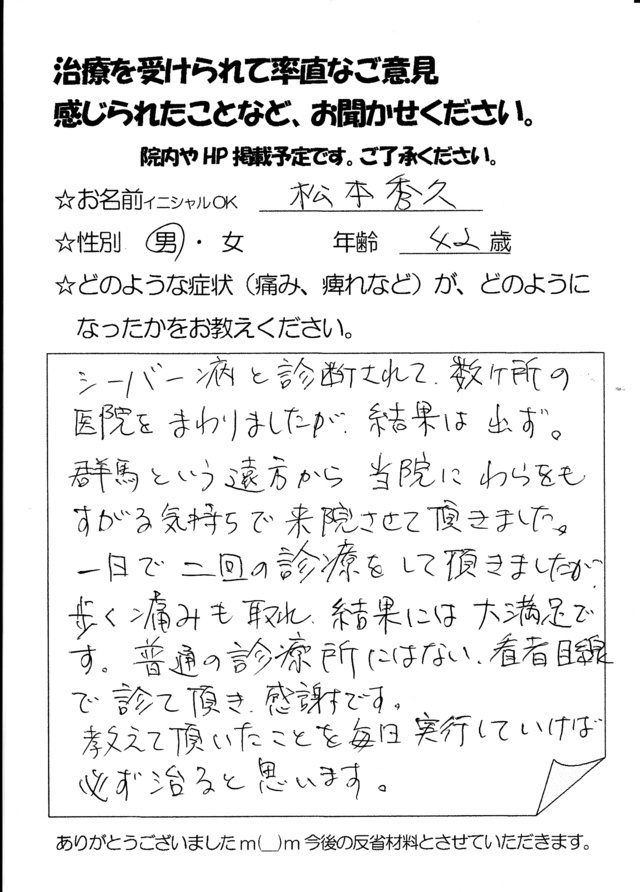 治療を受けられて率直なご意見
感じられたことなど、お聞かせください。
院内や HP 掲載予定です。ご了承ください。
☆お名前イニシャルOK 松本秀久
☆性別 男・女 年齢 42歳
☆どのような症状（痛み、痺れなど）が、どのように
なったかをお教えください。
シーバー病と診断されて、数ケ所の
医院をまわりましたが、結果は出ず。
群馬という遠方から当院にわらをも
すがる気持ちで来院させて頂きました。
一日で二回の診療をして頂きましたが、
歩く痛みも取れ、結果には大満足で
す。普通の診療所にはない、看者目線
で診て頂き、感謝です。
教えて頂いたことを毎日実行していけば
必ず治ると思います。
ありがとうございましたm(__)m今後の反省材料とさせていただきます。